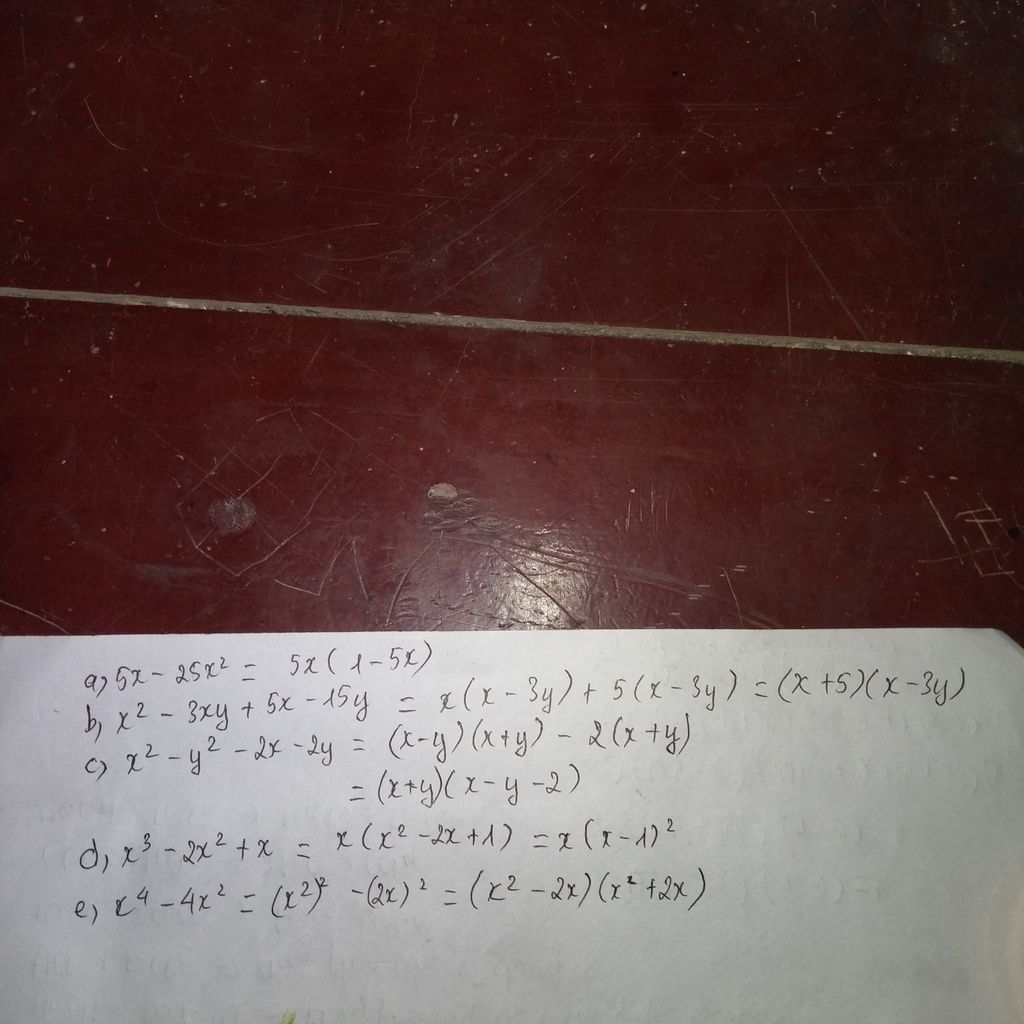 a, 5x - 25x² = 5x(1 - 5x)
b, x² - 3xy + 5x - 15y = x(x - 3y) + 5(x - 3y) = (x + 5)(x - 3y)
c, x² - y² - 2x - 2y = (x - y)(x + y) - 2(x + y)
= (x + y)(x - y - 2)
d, x³ - 2x² + x = x(x² - 2x + 1) = x(x - 1)²
e, x⁴ - 4x² = (x²)² - (2x)² = (x² - 2x)(x² + 2x)